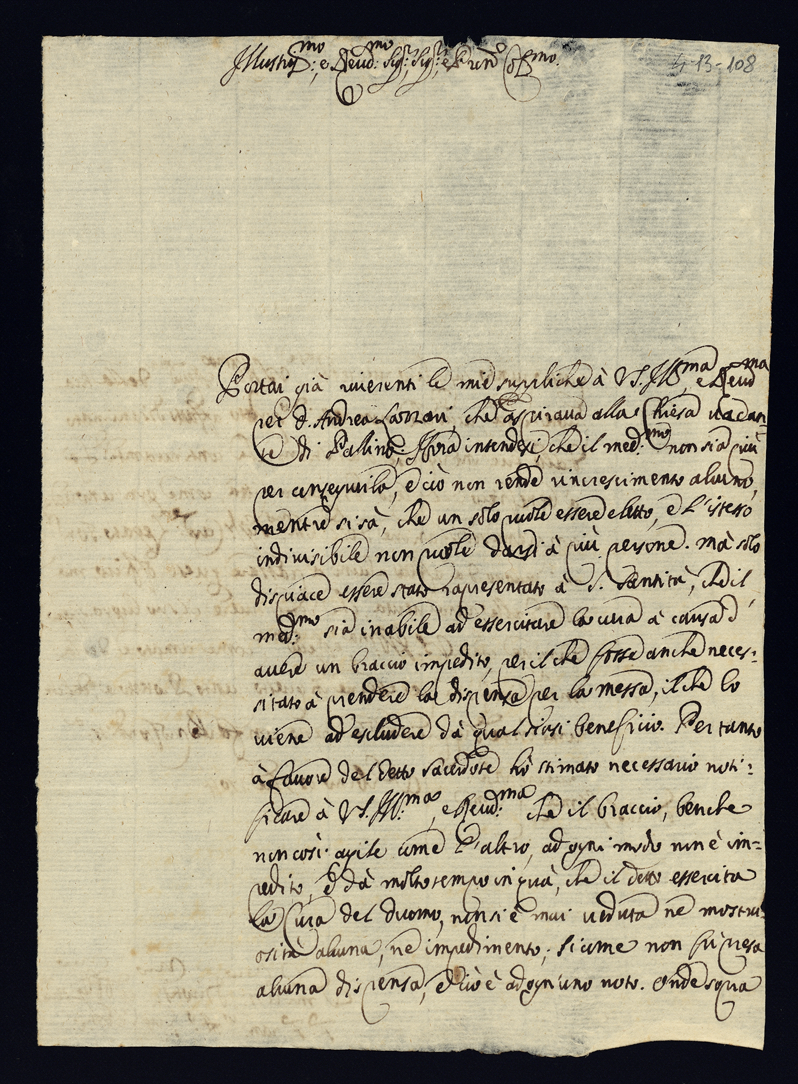 Illustriss.mo, e Reud.mo Sig.r Sig.r e P.ron Col.mo
4-13-108
Portai già riuerenti le mie suppliche à VS. Ill.ma, e Reud.ma
per D. Andrea Lazzari, che aspiraua alla Chiesa uacan=
te di Pallino. Hora intendesi, che il med.mo non sia più
per conseguirla, e ciò non rende rincrescimento alcuno,
mentre si sà, che un solo puole essere eletto, e l'istesso
indiuisibile non puole darsi à più persone. mà solo
dispiace essere stato rapresentato à S. Santità, che il
med.mo sia inabile ad essercitare la cura à causa d'
auere un braccio impedito, per il che fosse anche neces=
sitato à prendere la dispensa per la messa, il che lo
uiene ad escludere dà qual sisia beneficio. Per tanto
à fauore del detto sacerdote hò stimato necessario noti=
ficare à VS. Ill.ma, e Reud.ma che il braccio, benche
non così agile come l'altro, ad ogni modo non è im=
pedito, e dà molto tempo in quà, che il detto essercita
la Cura del Duomo, non si è mai ueduta ne mostru=
osità alcuna, ne impedimento; si come non fù presa
alcuna dispensa, e ciò è ad ogn'uno noto. Onde s'qua